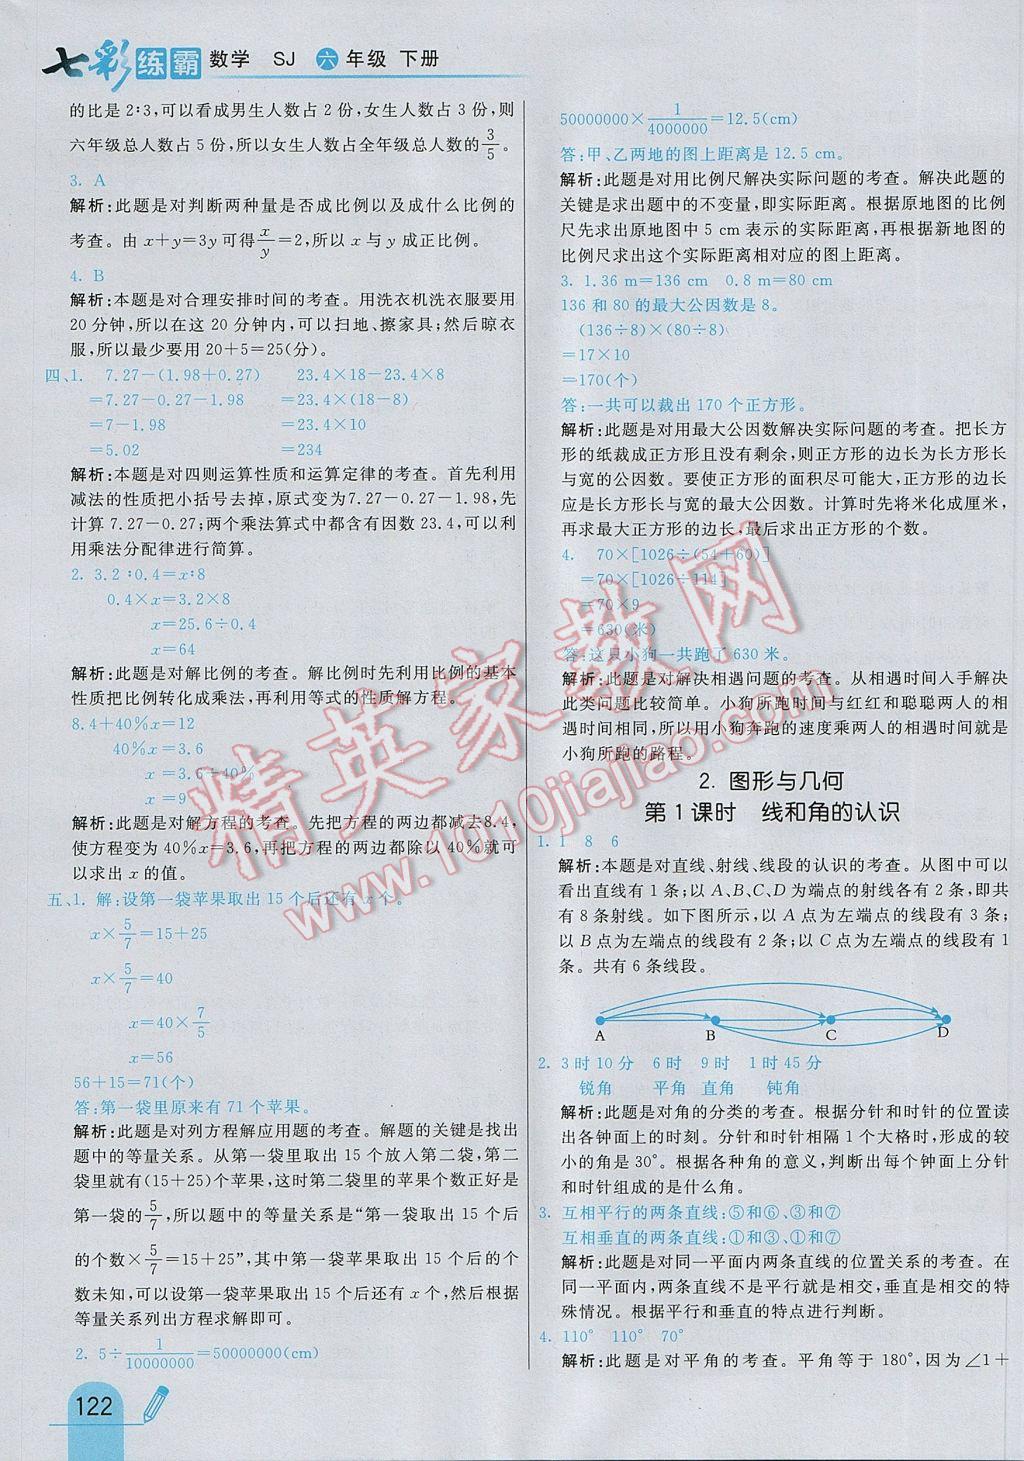 七彩练霸 数学 SJ 六年级 下册
的比是 2∶3,可以看成男生人数占 2 份,女生人数占 3 份,则
六年级总人数占 5 份,所以女生人数占全年级总人数的3/5。
3. A
解析:此题是对判断两种量是否成比例以及成什么比例的
考查。由 x+y=3y 可得x/y=2,所以 x 与 y 成正比例。
4. B
解析:本题是对合理安排时间的考查。用洗衣机洗衣服要用
20 分钟,所以在这 20 分钟内,可以扫地、擦家具;然后晾衣
服,所以最少要用 20+5=25(分)。
四、1. 7.27-(1.98+0.27) 23.4×18-23.4×8
=7.27-0.27-1.98 =23.4×(18-8)
=7-1.98 =23.4×10
=5.02 =234
解析:本题是对四则运算性质和运算定律的考查。首先利用
减法的性质把小括号去掉,原式变为7.27-0.27-1.98,先
计算 7.27-0.27;两个乘法算式中都含有因数 23.4,可以利
用乘法分配律进行简算。
2. 3.2∶0.4=x∶8
0.4×x=3.2×8
x=25.6÷0.4
x=64
解析:此题是对解比例的考查。解比例时先利用比例的基本
性质把比例转化成乘法,再利用等式的性质解方程。
8.4+40%x=12
40%x=3.6
x=3.6÷40%
x=9
解析:此题是对解方程的考查。先把方程的两边都减去8.4,
使方程变为 40%x=3.6,再把方程的两边都除以 40%就可
以求出 x 的值。
五、1. 解:设第一袋苹果取出 15 个后还有 x 个。
x×5/7=15+25
x×5/7=40
x=40×7/5
x=56
56+15=71(个)
答:第一袋里原来有 71 个苹果。
解析:此题是对列方程解应用题的考查。解题的关键是找出
题中的等量关系。从第一袋里取出 15 个放入第二袋,第二
袋里就有(15+25)个苹果,这时第二袋里的苹果个数正好是
第一袋的5/7,所以题中的等量关系是“第一袋取出 15 个后
的个数×5/7=15+25”,其中第一袋苹果取出 15 个后的个
数未知,可以设第一袋苹果取出 15 个后还有 x 个,然后根据
等量关系列出方程求解即可。
2. 5÷1/10000000=50000000(cm)
50000000×1/4000000=12.5(cm)
答:甲、乙两地的图上距离是 12.5 cm。
解析:此题是对用比例尺解决实际问题的考查。解决此题的
关键是求出题中的不变量,即实际距离。根据原地图的比例
尺先求出原地图中 5 cm 表示的实际距离,再根据新地图的
比例尺求出这个实际距离相对应的图上距离。
3. 1.36 m=136 cm 0.8 m=80 cm
136 和 80 的最大公因数是 8。
(136÷8)×(80÷8)
=17×10
=170(个)
答:一共可以裁出 170 个正方形。
解析:此题是对用最大公因数解决实际问题的考查。把长方
形的纸裁成正方形且没有剩余,则正方形的边长为长方形长
与宽的公因数。要使正方形的面积尽可能大,正方形的边长
应是长方形长与宽的最大公因数。计算时先将米化成厘米,
再求最大正方形的边长,最后求出正方形的个数。
4. 70×[1026÷(54+60)]
=70×[1026÷114]
=70×9
=630(米)
答:这只小狗一共跑了 630 米。
解析:此题是对解决相遇问题的考查。从相遇时间入手解决
此类问题比较简单。小狗所跑时间与红红和聪聪两人的相
遇时间相同,所以用小狗奔跑的速度乘两人的相遇时间就是
小狗所跑的路程。
2. 图形与几何
第 1 课时 线和角的认识
1. 1 8 6
解析:本题是对直线、射线、线段的认识的考查。从图中可以
看出直线有 1 条;以 A、B、C、D 为端点的射线各有 2 条,即共
有 8 条射线。如下图所示,以 A 点为左端点的线段有 3 条;
以 B 点为左端点的线段有 2 条;以 C 点为左端点的线段有 1
条。共有 6 条线段。
A B C D
2. 3 时 10 分 6 时 9 时 1 时 45 分
锐角 平角 直角 钝角
解析:此题是对角的分类的考查。根据分针和时针的位置读
出各钟面上的时刻。分针和时针相隔 1 个大格时,形成的较
小的角是 30°。根据各种角的意义,判断出每个钟面上分针
和时针组成的是什么角。
3. 互相平行的两条直线:⑤和⑥、③和⑦
互相垂直的两条直线:①和③、①和⑦
解析:此题是对同一平面内两条直线的位置关系的考查。在
同一平面内,两条直线不是平行就是相交,垂直是相交的特
殊情况。根据平行和垂直的特点进行判断。
4. 110° 110° 70°
解析:此题是对平角的考查。平角等于 180°,因为∠1+
122
精英家教网
www.1010jiajiao.com